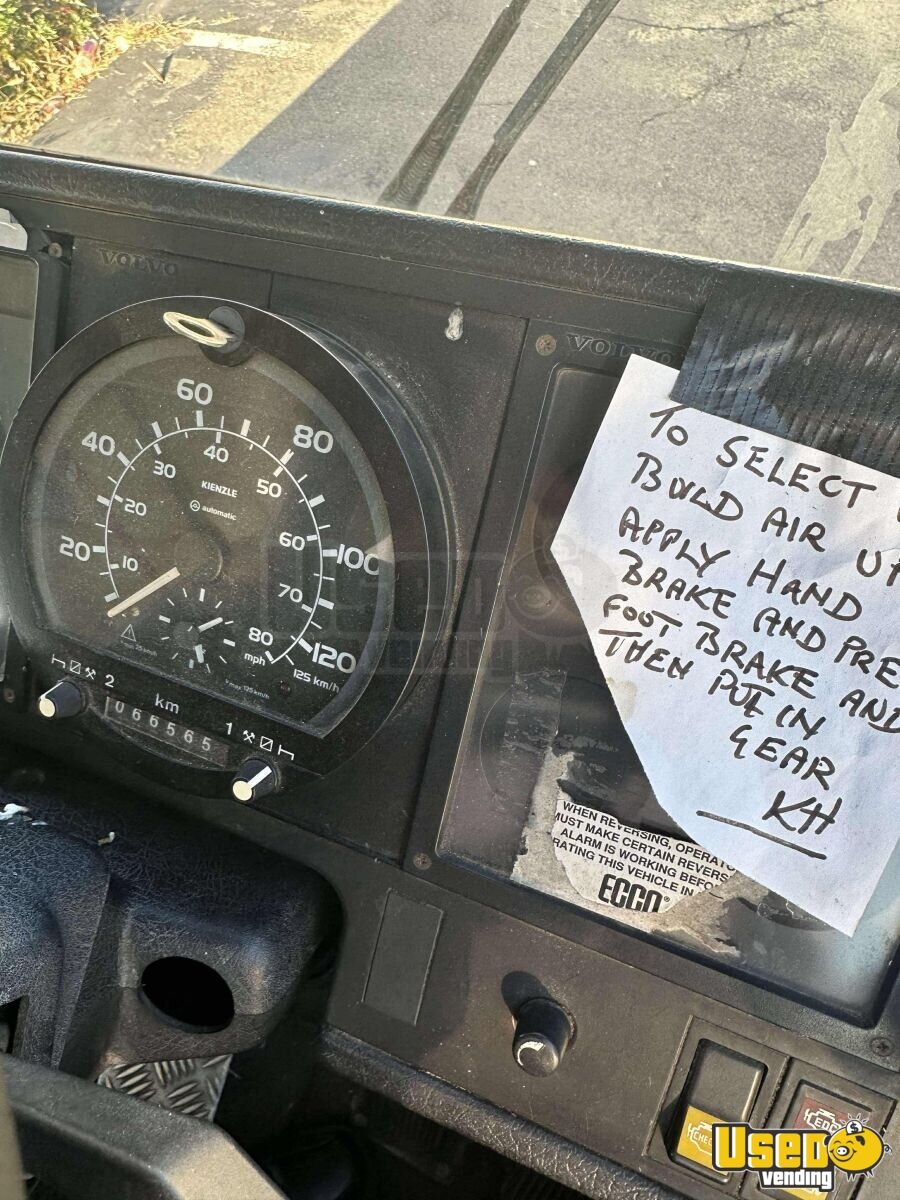 VOLVO
VOLVO
60
80
40
100
20
120
40
30
50
20
60
10
70
80
mph
KIENZLE
automatic
125 km/h
2
km
1
066565
TO SELECT
BUILD AIR UP
APPLY HAND
BRAKE (AND PRE
FOOT BRAKE AND
THEN PUT IN
GEAR
KH
WHEN REVERSING, OPERATO
MUST MAKE CERTAIN REVERS
ALARM IS WORKING BEFO
RATING THIS VEHICLE IN
ECCO
CHECK
EDC
USED
vending